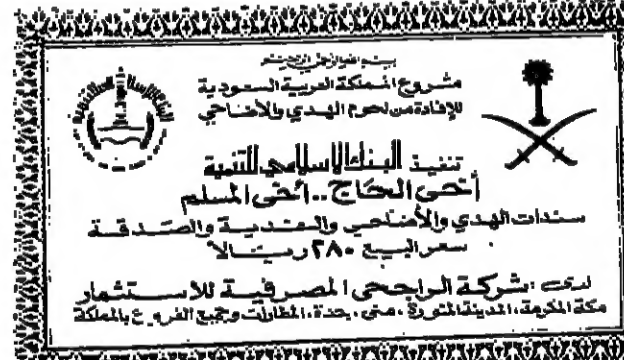 بسم الله الرحمن الرحيم
مشروع المملكة العربية السعودية
للإفادة من لحوم الهدي والأضاحي
تنفيذ البنك الإسلامي للتنمية
أخي الحاج .. أخي المسلم
سندات الهدي والأضاحي والفدية والصدقة
سعر البيع ٢٨٠ ريالاً
لدى : شركة الراجحي المصرفية للاستثمار
مكة المكرمة، المدينة المنورة، منى، جدة، المطارات وجميع الفروع بالمملكة